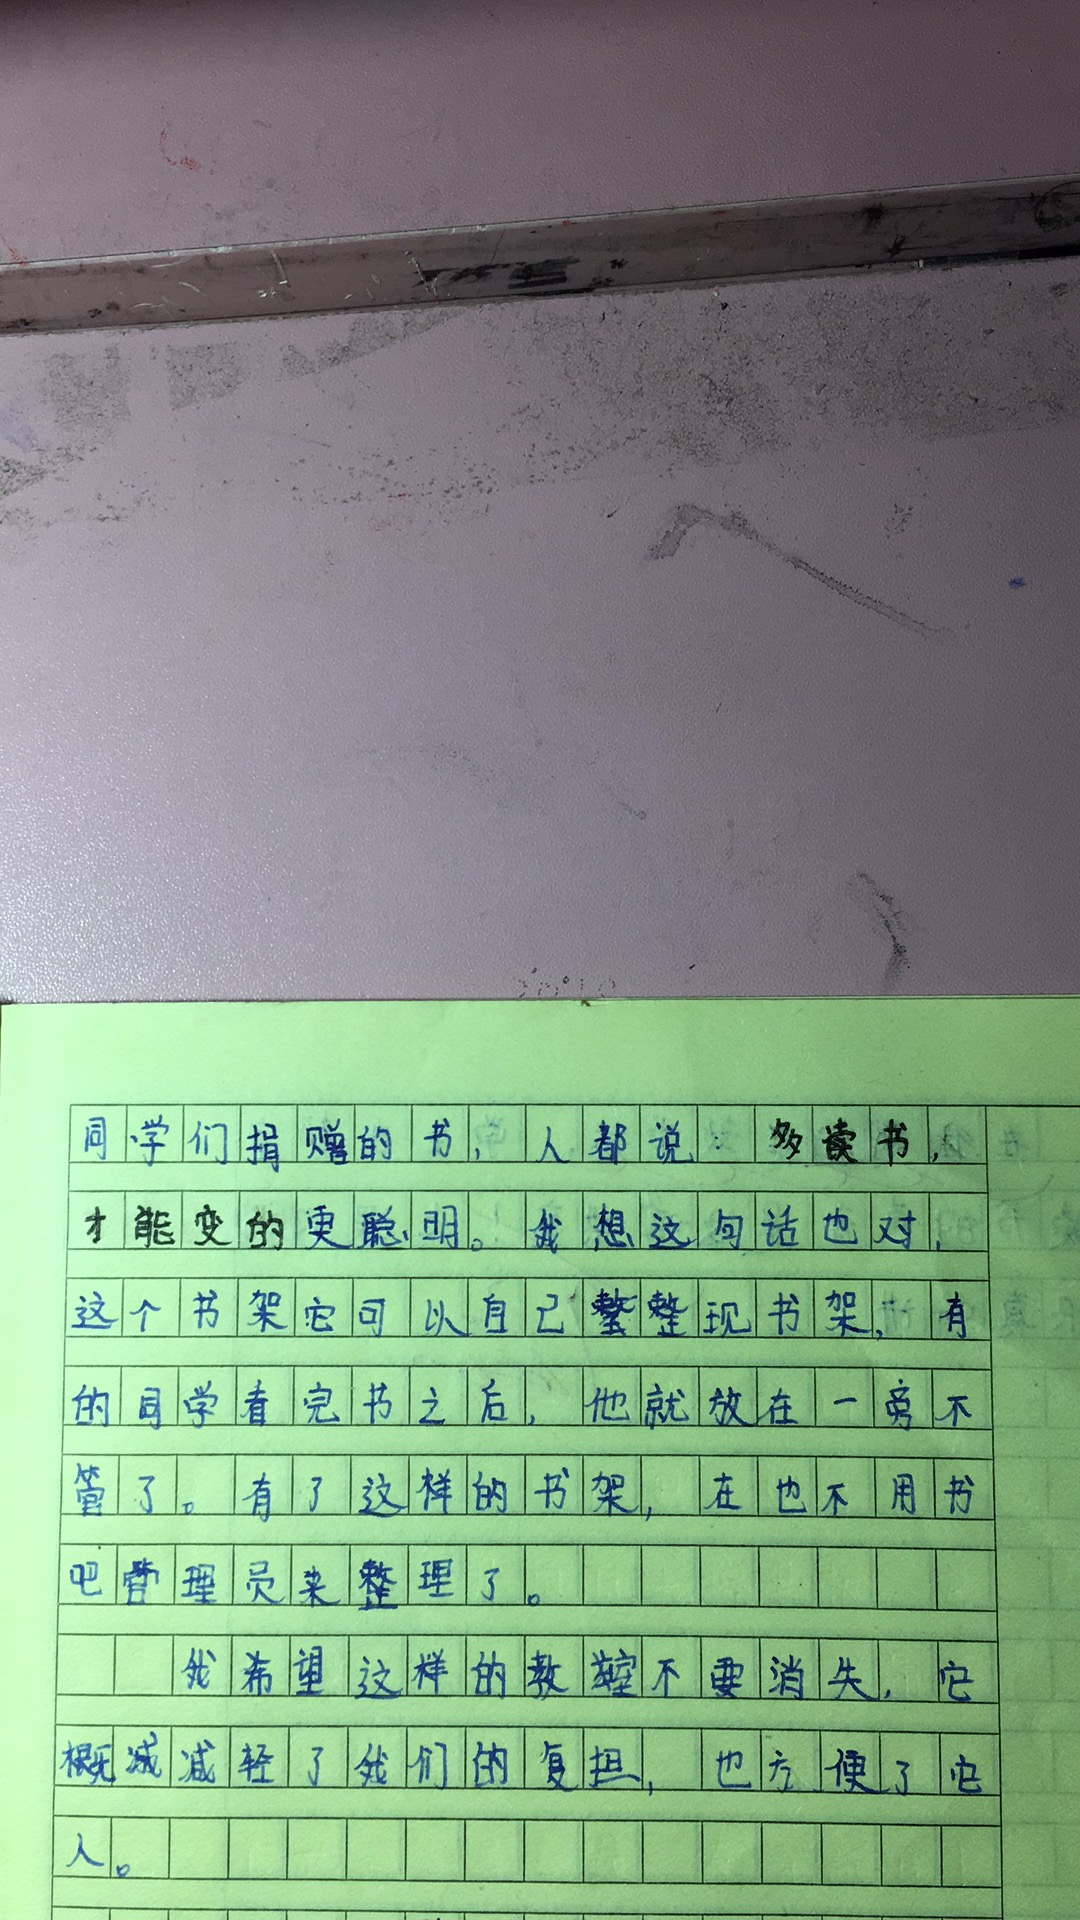 同学们捐赠的书，人都说：多读书，
才能变的更聪明。我想这句话也对，
这个书架它可以自己整整现书架，有
的同学看完书之后，他就放在一旁不
管了。有了这样的书架，在也不用书
吧管理员来整理了。
我希望这样的教室不要消失，它
概减减轻了我们的复担，也方便了它
人。